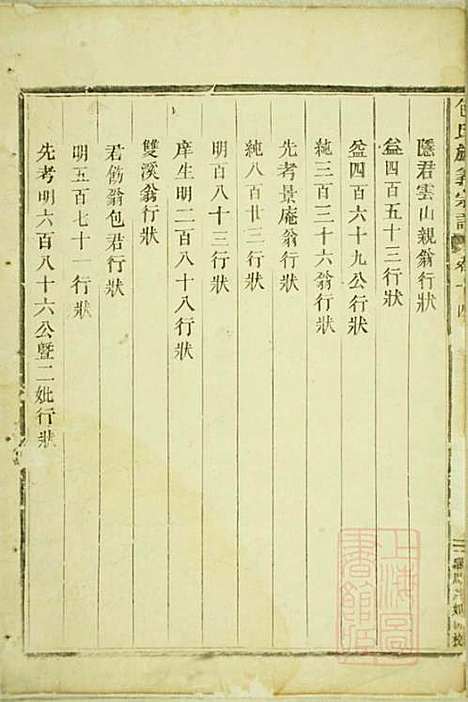 隱君雲山親翁行狀
益四百五十三行狀
益四百六十九公行狀
純三百三十六翁行狀
先考景庵翁行狀
純八百廿三行狀
明百八十三行狀
庠生明二百八十八行狀
雙溪翁行狀
君飭翁包君行狀
明五百七十一行狀
先考明六百八十六公暨二妣行狀
上海圖書館藏